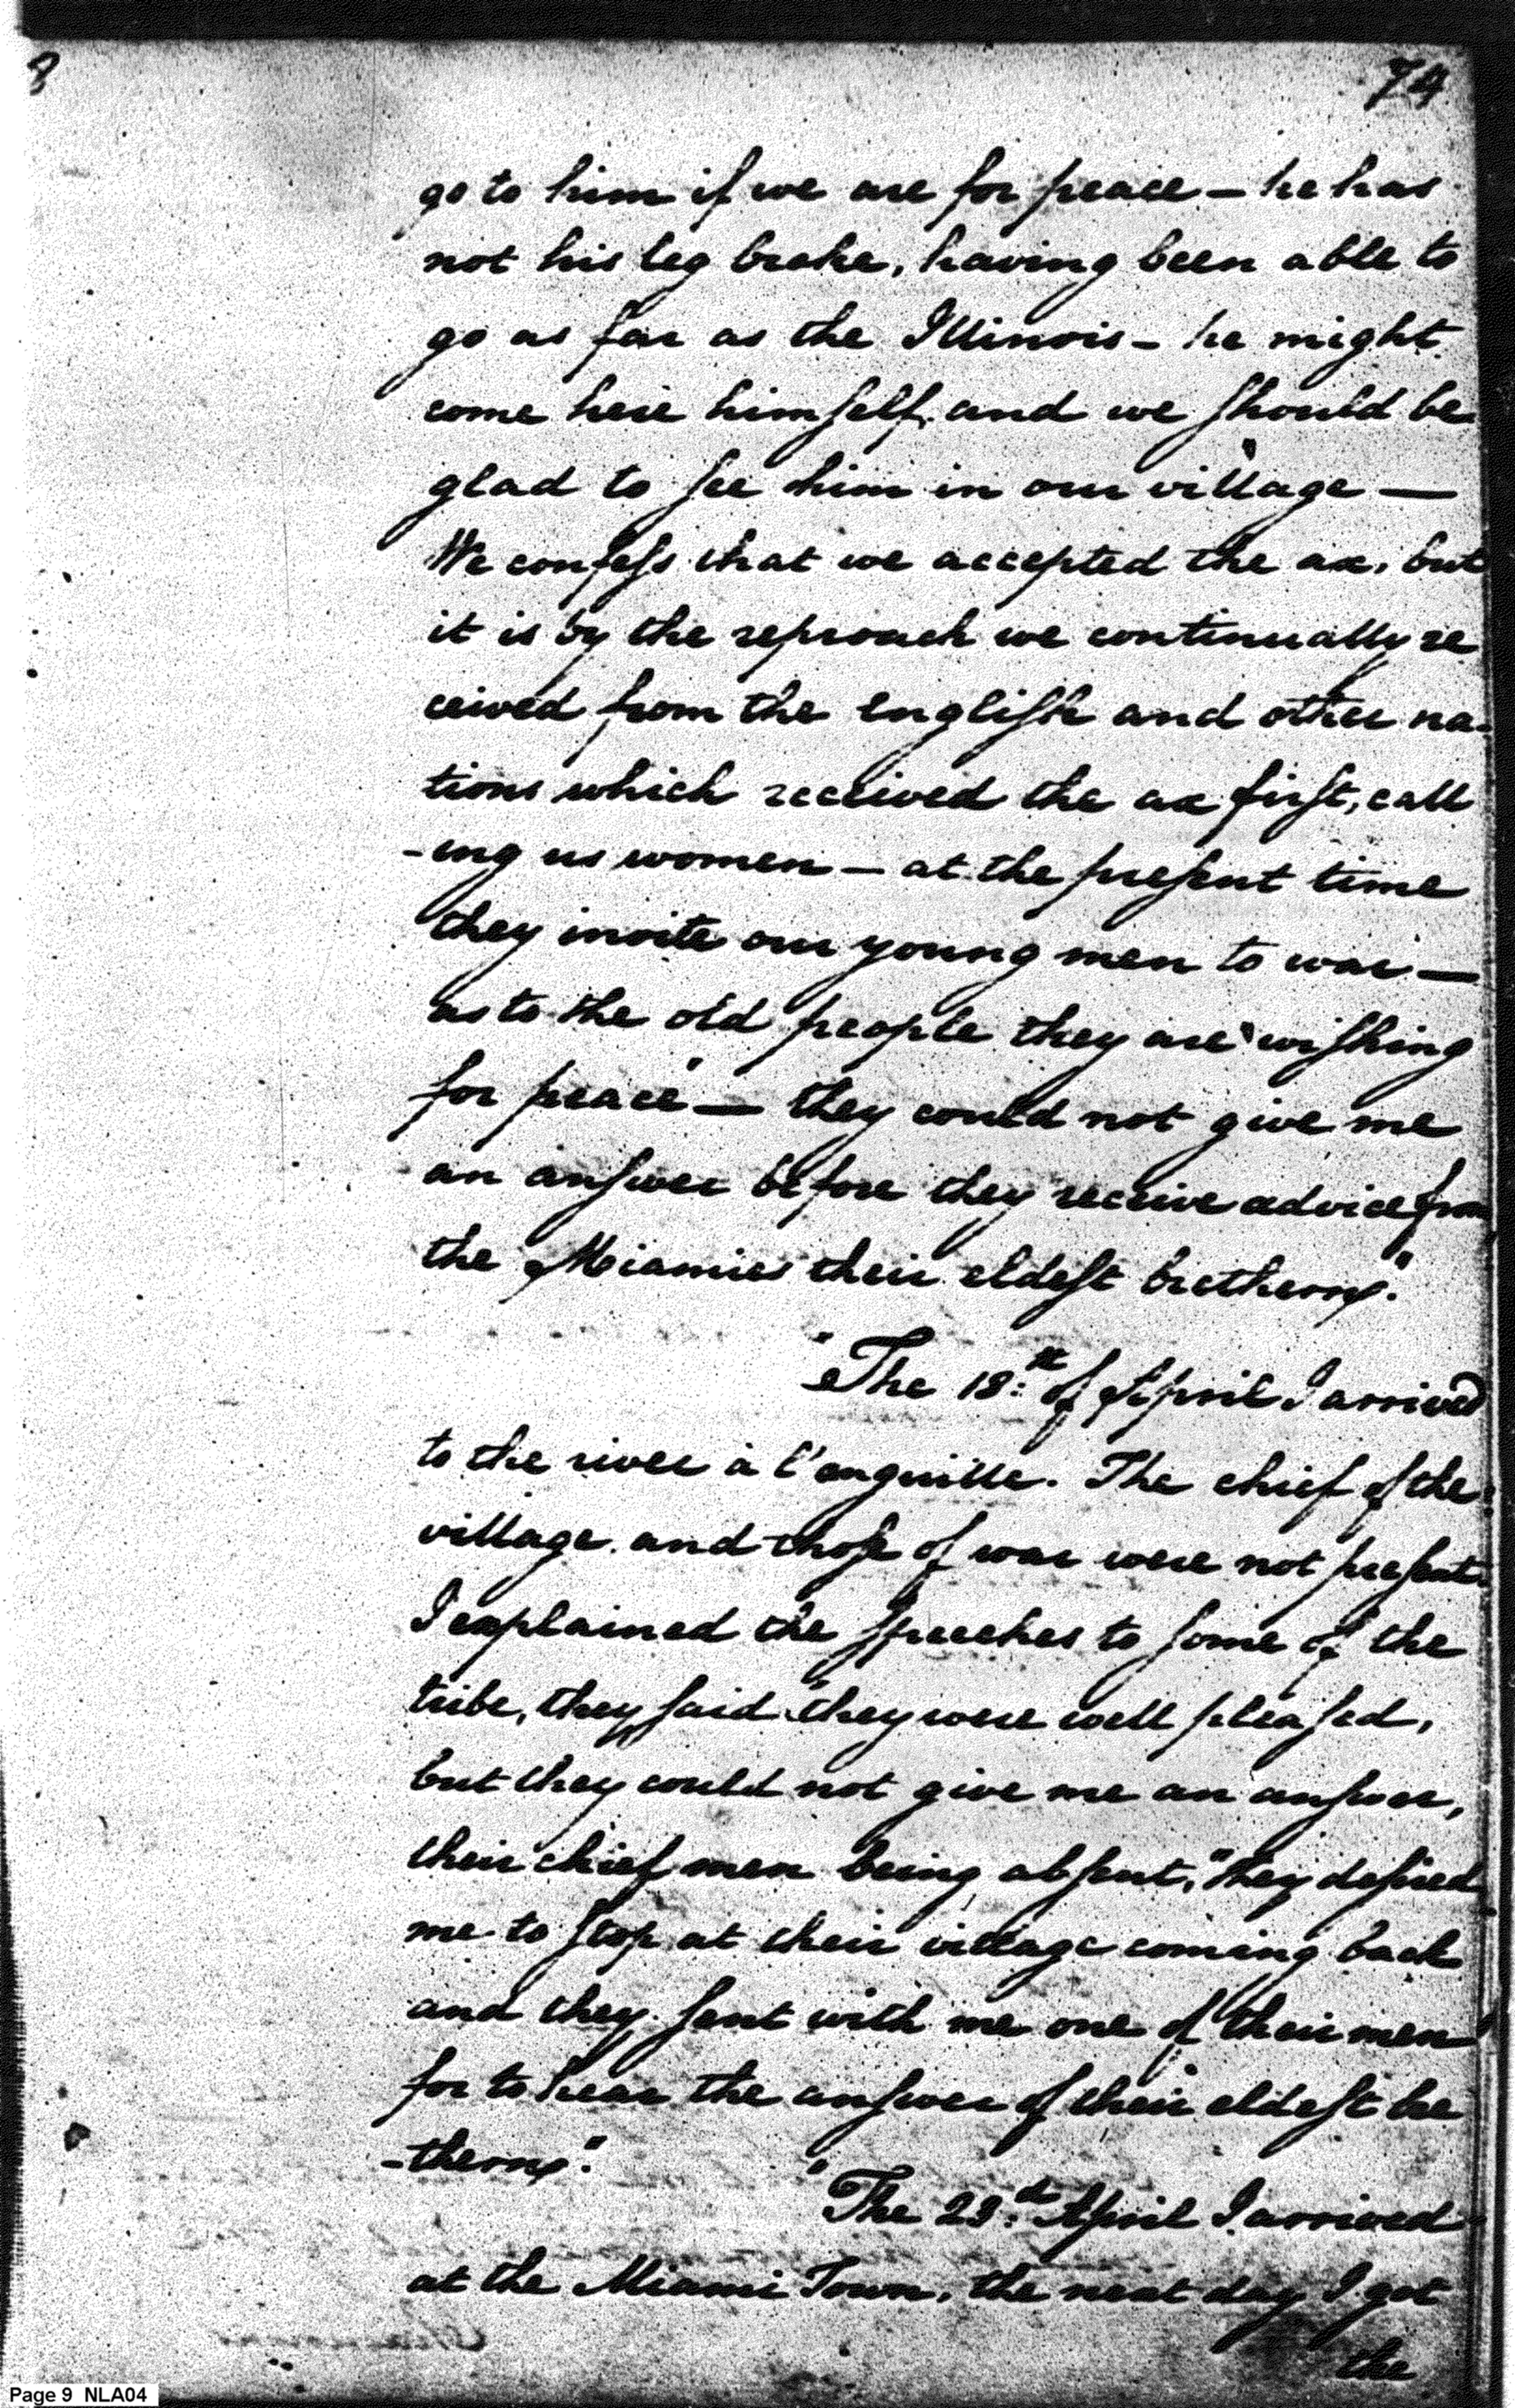 8
74
go to him if we are for peace — he has
not his leg broke, having been able to
go as far as the Illinois — he might
come here himself, and we should be
glad to see him in our village —
We confess that we accepted the ax, but
it is by the reproach we continually re
ceived from the English and other na-
tions which received the ax first, call
-ing us women — at the present time
they invite our young men to war —
as to the old people they are "wishing
for peace" — they could not give me
an answer before they receive advice from
the Miamies their eldest bretheren."
"The 18:th of April I arrived
to the river à l'anguille. The chief of the
village and those of war were not present.
I explained the speeches to some of the
tribe, they said "they were well pleased,
but they could not give me an answer,
their chief men being absent," they desired
me to stop at their village coming back
and they sent with me one of their men
for to hear the answer of their eldest bre
-theren."
"The 23:d April I arrived
at the Miami Town, the next day I got
the
Page 9 NLA04